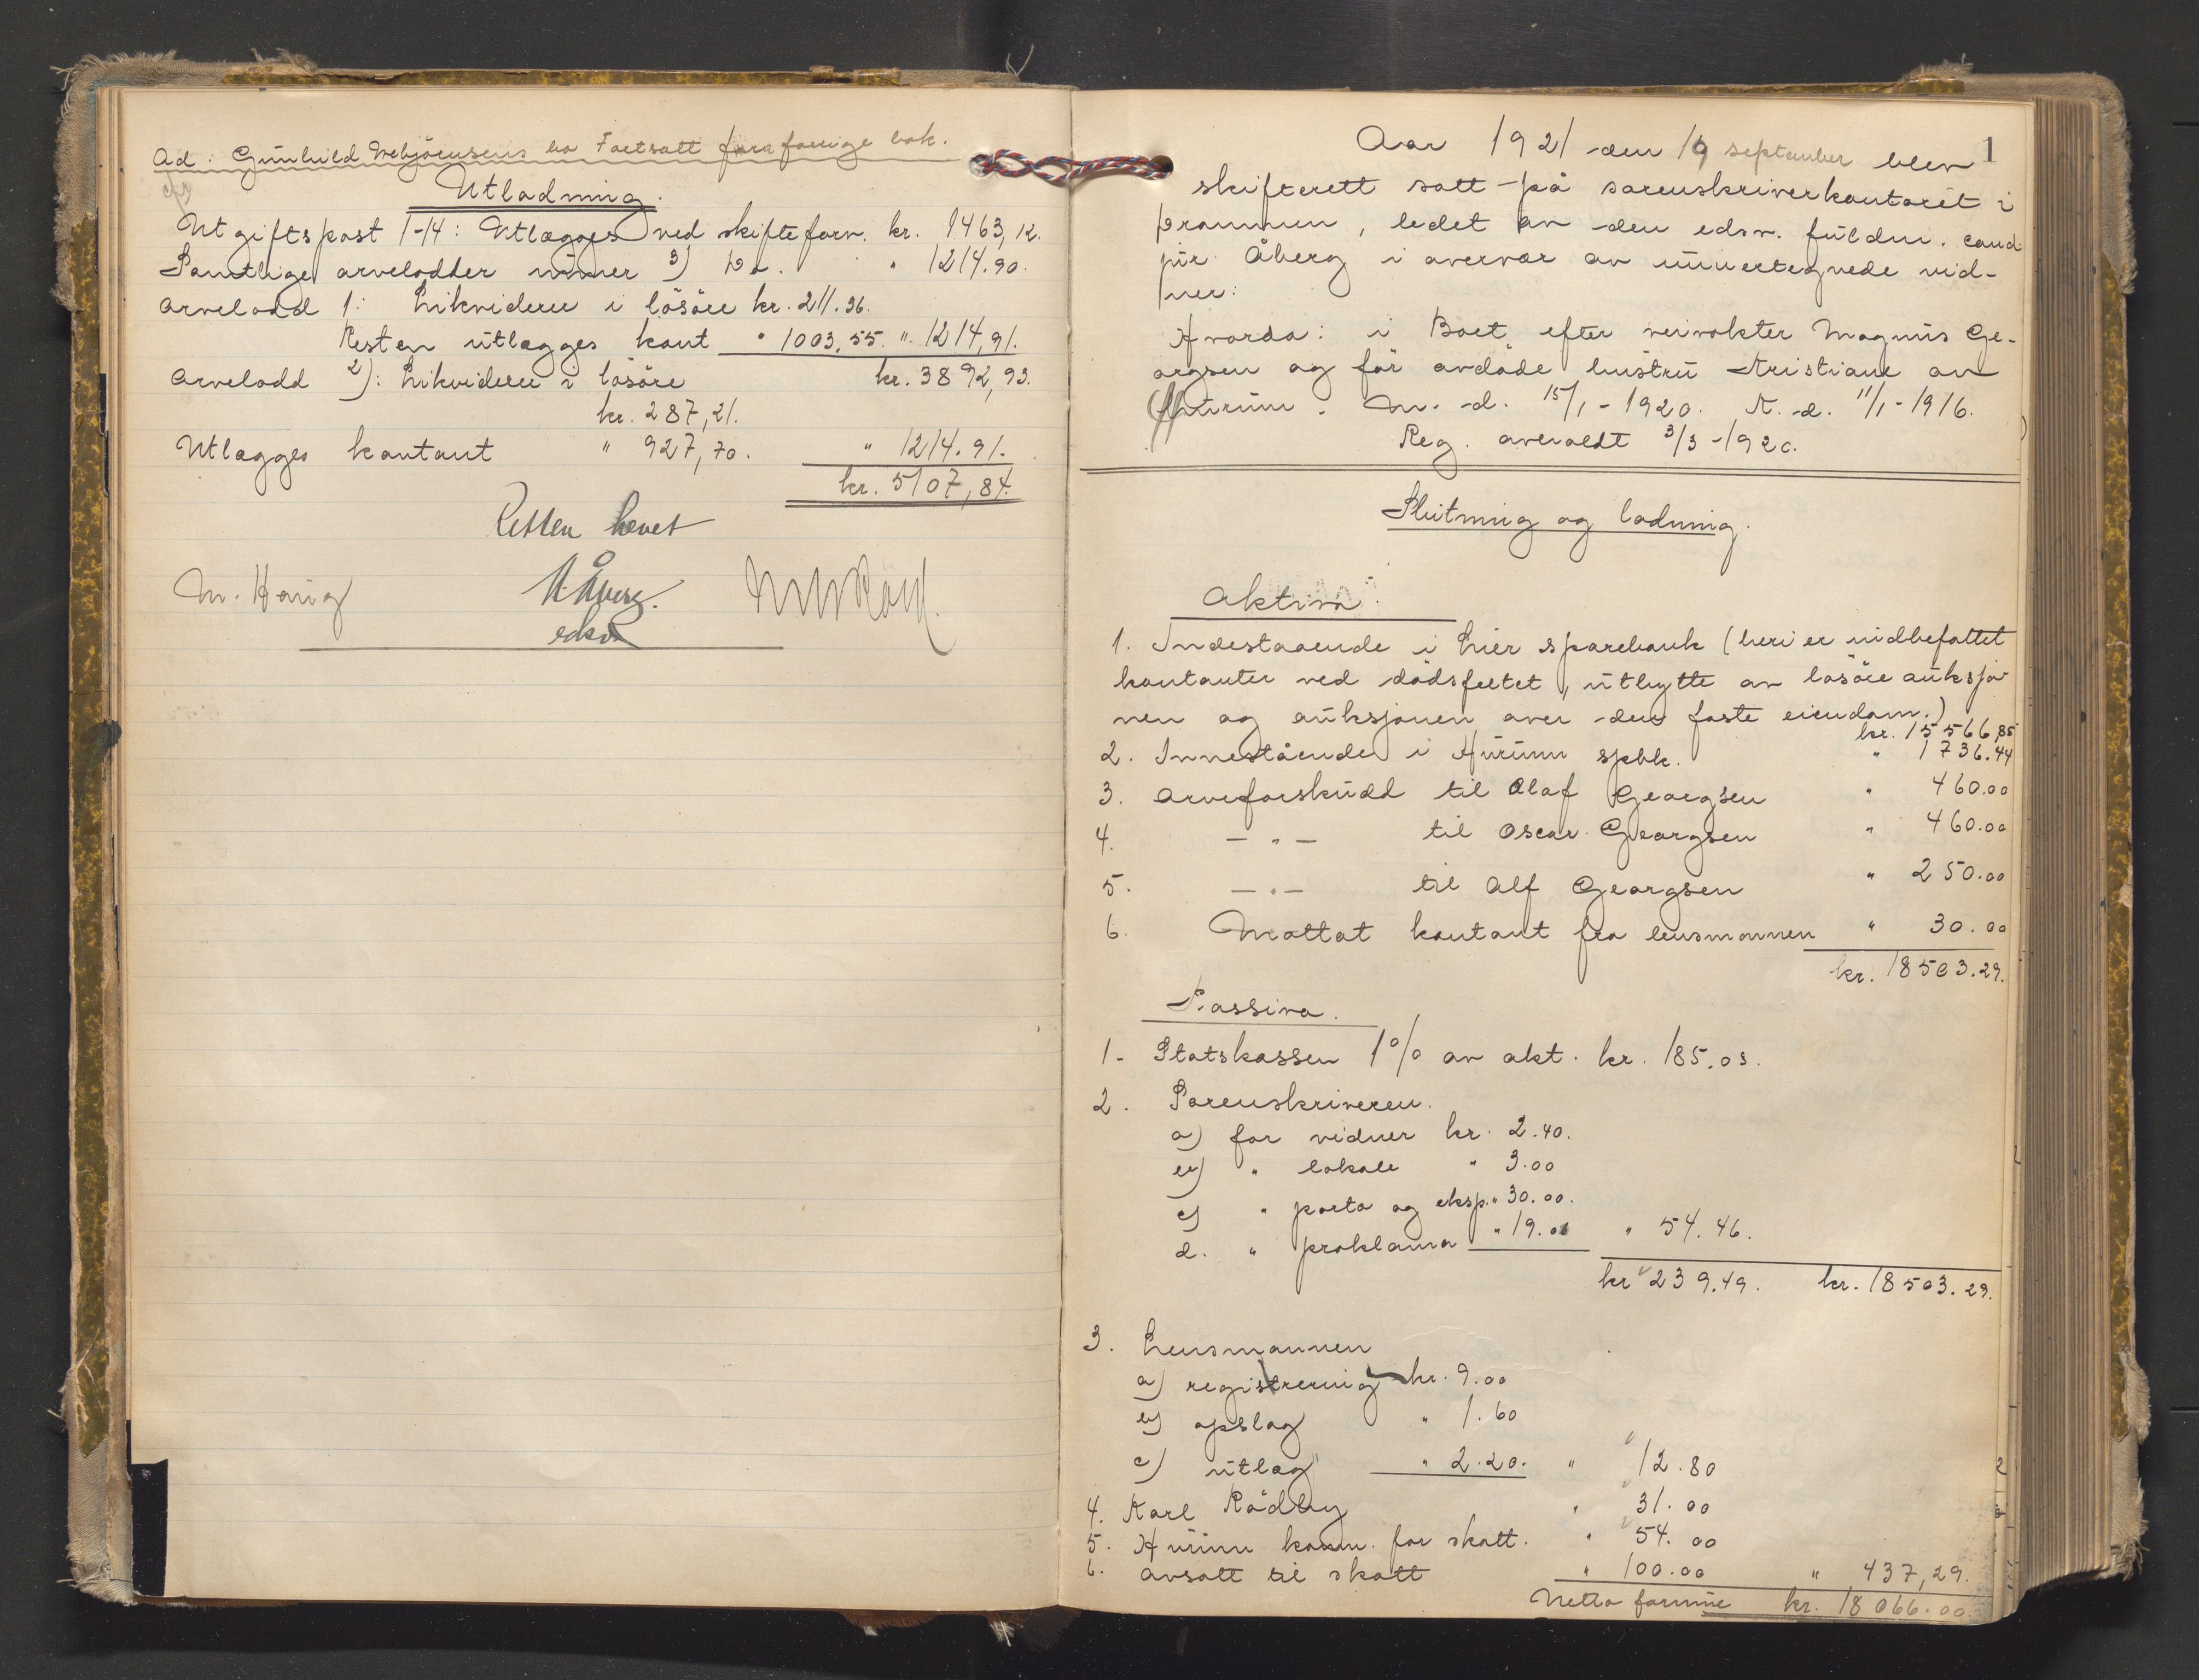 Ad. Gunhild Vebjörnsens bo Fortsatt fra forrige bok.
Utlodning.
Utgiftspost 1-14: Utlægges ved skifteforv. kr. 1463,12.
Samtlige arvelodder minner 3) Do. " 1214.90.
Arvelodd 1: Likviderer i lösöre kr. 211.36.
Resten utlægges kont " 1003,55. " 1214,91.
Arvelodd 2): Likviderer i lösöre kr. 3892,93.
kr. 287,21.
Utlægges kontant " 927,70. " 1214.91.
kr. 5107,84.
Retten hevet
M. Haug Åberg.
edsv
1
Aar 1921 den 19 september blev
skifterett satt på sorenskriverkontoret i
Drammen, ledet av den edsv. fuldm. cand
jur. Åberg i overvær av undertegnede vid-
ner:
Hvorda: i Boet efter ververokter Magnus Ge-
orgsen og för avdöde hustru Kristiane av
Hurum. M. d. 15/1-1920. K. d. 11/1-1916.
Reg. averoldt 3/3-1920.
Slutning og lodning.
Aktiva.
1. Indestaaende i Lier sparebank (heri er indbefattet
kontanter ved dödsfeltet, utbytte av lösöre auksjo-
nen og auksjonen over den faste eiendom.)
kr. 15566,85
2. Innestående i Hurum spbk. " 1736.44
3. Arveforskudd til Olaf Georgsen " 460.00
4. — " — til Oscar Georgsen " 460.00
5. — " — til Alf Georgsen " 250.00
6. Mottat kontant fra lensmannen " 30.00
kr. 18503.29.
Passiva.
1. Statskassen 1% av akt. kr. 185.03.
2. Sorenskriveren.
a) for vidner kr. 2.40.
b) " lokale " 3.00
c) " porto og eksp. " 30.00.
d. " proklama " 19.06 " 54.46.
kr 239.49. kr. 18503.29.
3. Lensmannen
a) registrering kr. 9.00
b) opslag " 1.60
c) utlæg " 2.20. " 12.80
4. Karl Rödby " 31.00
5. Hurum komm. for skatt. " 54.00
6. Avsatt til skatt " 100.00 " 437,29.
Netto formue kr. 18066.00.